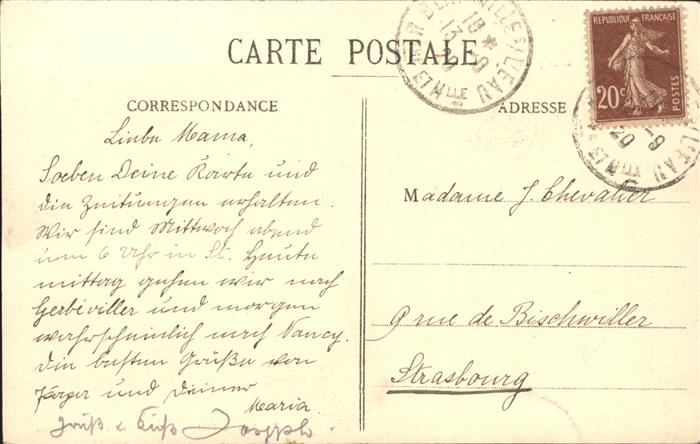 CARTE POSTALE
CORRESPONDANCE
ADRESSE
RÉPUBLIQUE FRANÇAISE
20c
POSTES
Liebe Mama,
Soeben Deine Karte und
die Zeitungen erhalten.
Wir sind Mittwoch abend
um 6 Uhr in St. Heute
mittag gehen wir nach
Gerbéviller und morgen
wahrscheinlich nach Nancy.
Die besten Grüße von
und Deiner
Maria.
Gruß & Kuß Joseph
Madame J. Chevalier
9 rue de Bischwiller
Strasbourg